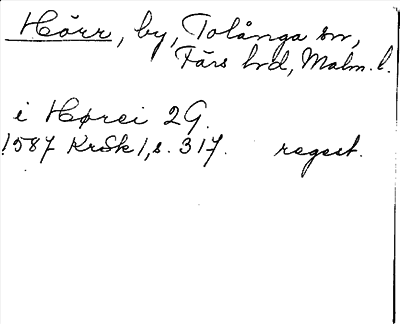 Hörr, by, Tolånga sn,
Färs hd, Malm. l.
i Hørei 2G.
1587 KrSk 1, s. 317. regest.